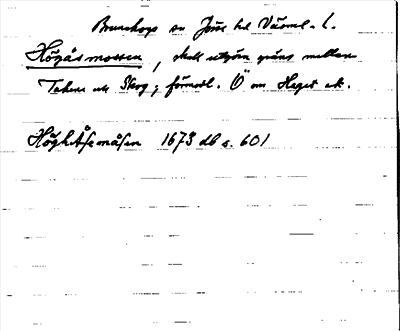 Brunskogs sn Jösse hd Värml. l.
Högåsmossen, skall utgöra gräns mellan
Takene och Skog; förmodl. Ö om Haget ek.
Höghåssmåsen 1673 db s. 601